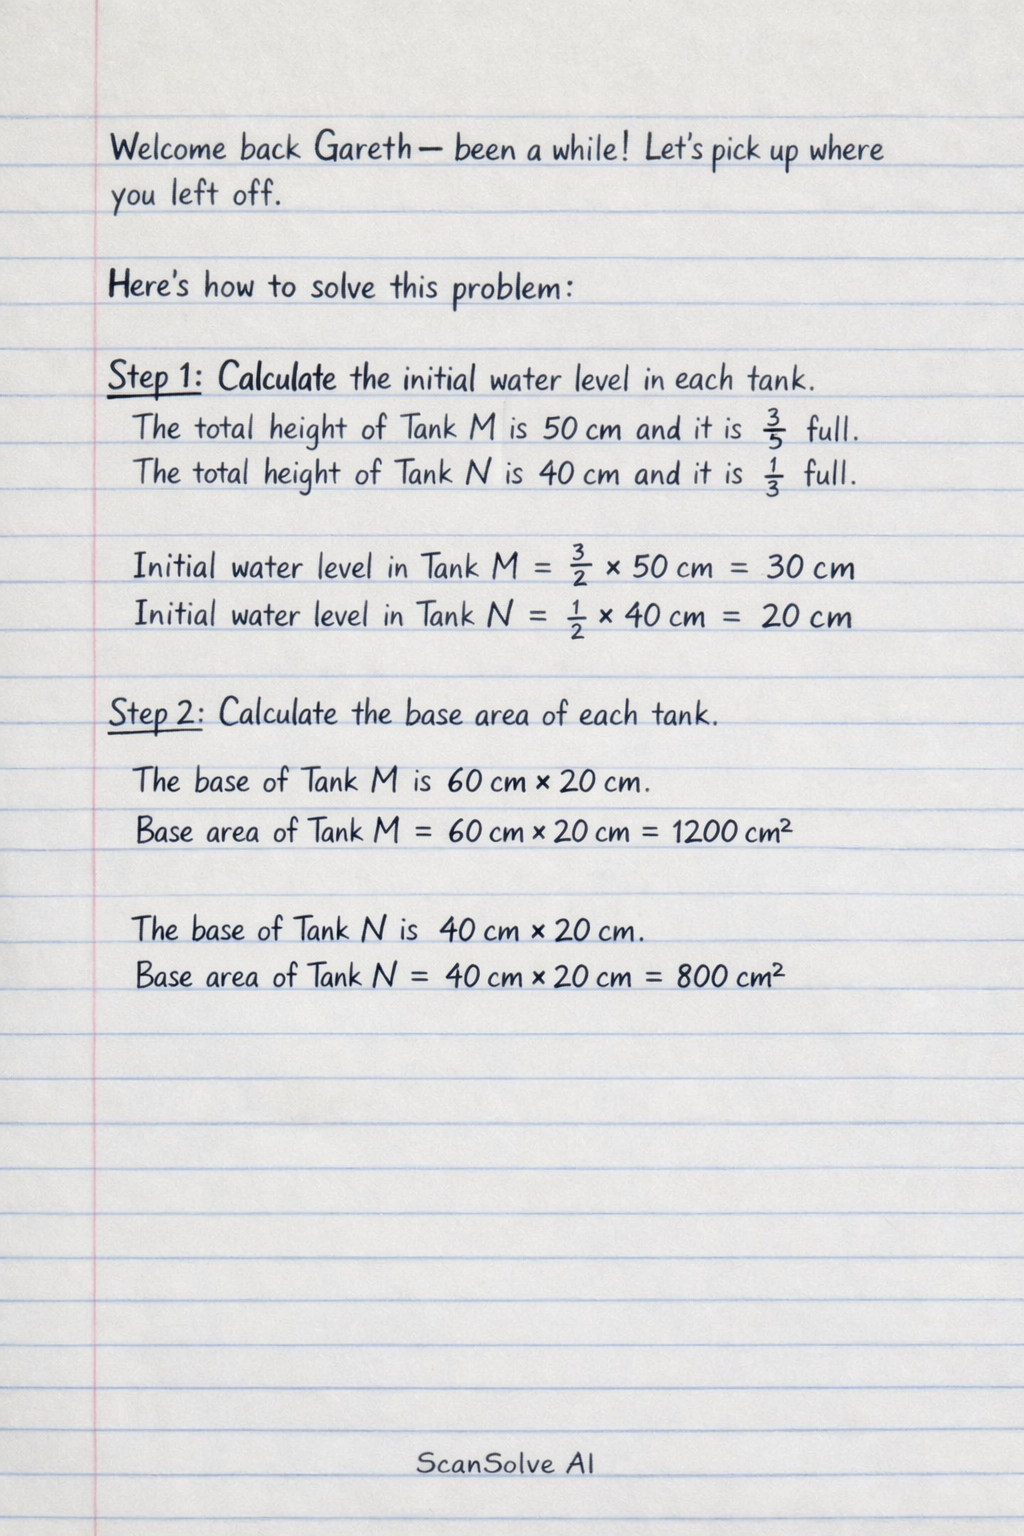 Welcome back Gareth— been a while! Let's pick up where
you left off.
Here's how to solve this problem:
Step 1: Calculate the initial water level in each tank.
The total height of Tank M is 50 cm and it is 3/5 full.
The total height of Tank N is 40 cm and it is 1/3 full.
Initial water level in Tank M = 3/2 × 50 cm = 30 cm
Initial water level in Tank N = 1/2 × 40 cm = 20 cm
Step 2: Calculate the base area of each tank.
The base of Tank M is 60 cm × 20 cm.
Base area of Tank M = 60 cm × 20 cm = 1200 cm²
The base of Tank N is 40 cm × 20 cm.
Base area of Tank N = 40 cm × 20 cm = 800 cm²
ScanSolve AI